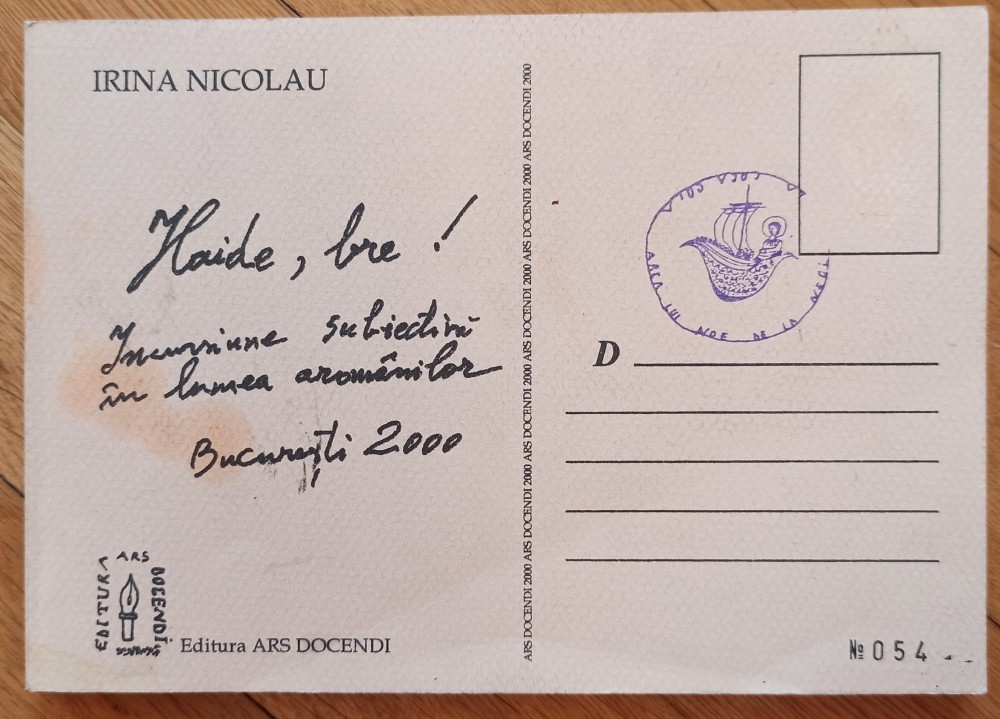 IRINA NICOLAU
Haide, bre !
Incursiune subiectivă
în lumea aromânilor
București 2000
EDITURA ARS DOCENDI
Editura ARS DOCENDI
ARS DOCENDI 2000 ARS DOCENDI 2000 ARS DOCENDI 2000 ARS DOCENDI 2000 ARS DOCENDI 2000 ARS DOCENDI 2000 ARS DOCENDI 2000
LA COCA COLA
ARCA LUI NOE DE LA
D
№ 054